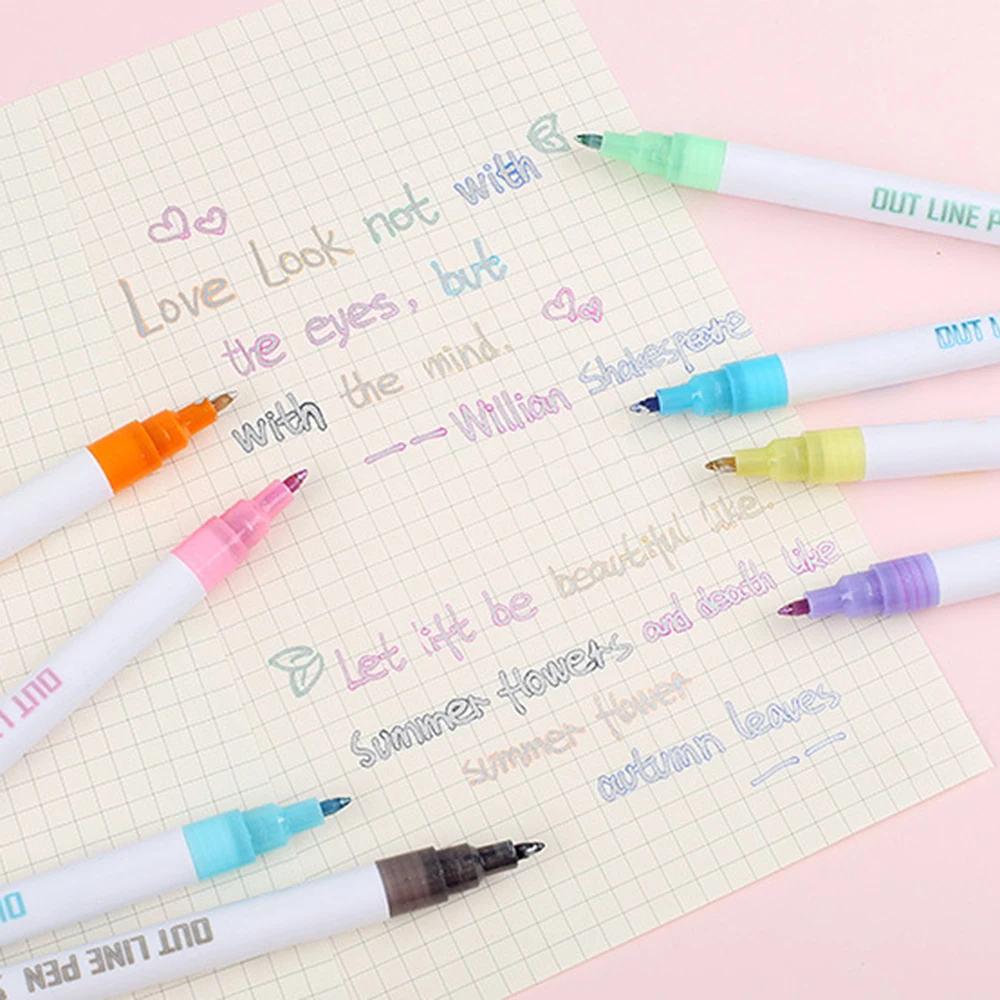 Love Look not with
the eyes, but
with the mind.
—— Willian Shakespeare
Let lift be beautiful like.
summer flowers and death like
summer flower
autumn leaves
——
OUT LINE P
OUT L
OUT LI
OUT LINE PEN